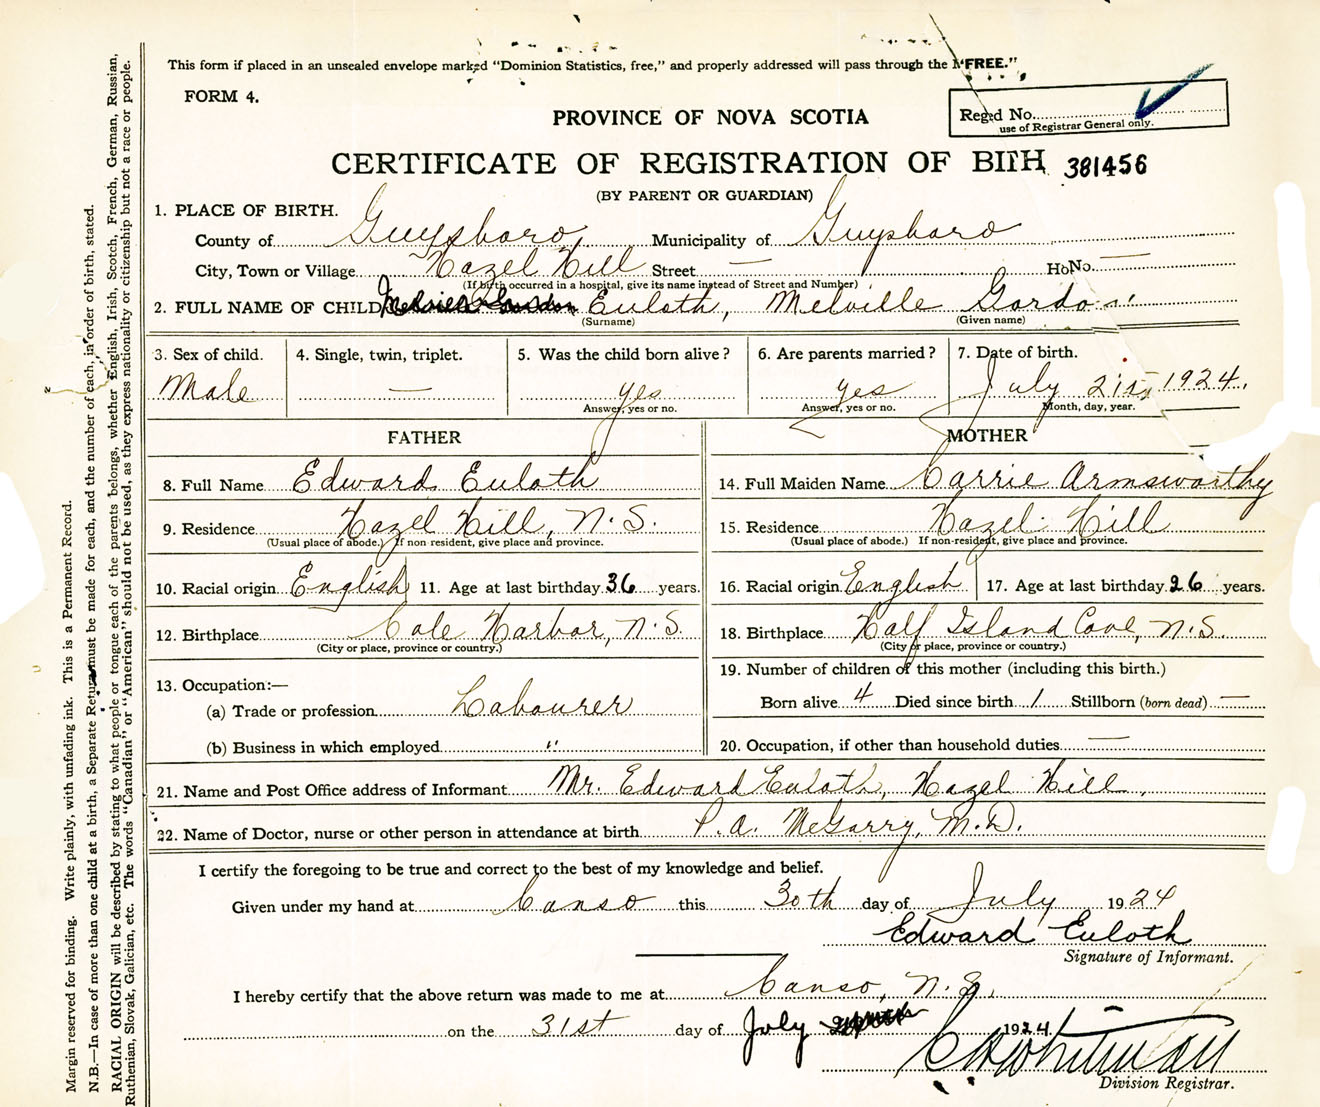 This form if placed in an unsealed envelope marked "Dominion Statistics, free," and properly addressed will pass through the "FREE."
FORM 4.
PROVINCE OF NOVA SCOTIA
Reg'd No.
use of Registrar General only.
CERTIFICATE OF REGISTRATION OF BIRTH 381456
(BY PARENT OR GUARDIAN)
1. PLACE OF BIRTH.
County of Guysboro, Municipality of Guysboro
City, Town or Village Hazel Hill Street — No. —
(If birth occurred in a hospital, give its name instead of Street and Number)
2. FULL NAME OF CHILD Euloth, Melville Gordon
(Surname) (Given name)
3. Sex of child. 4. Single, twin, triplet. 5. Was the child born alive? 6. Are parents married? 7. Date of birth.
Male — yes yes July 21st 1924.
Answer, yes or no. Answer, yes or no. Month, day, year.
FATHER MOTHER
8. Full Name Edward Euloth 14. Full Maiden Name Carrie Armsworthy
9. Residence Hazel Hill, N.S. 15. Residence Hazel Hill
(Usual place of abode.) If non-resident, give place and province. (Usual place of abode.) If non-resident, give place and province.
10. Racial origin English 11. Age at last birthday 36 years. 16. Racial origin English 17. Age at last birthday 26 years.
12. Birthplace Cole Harbor, N.S. 18. Birthplace Half Island Cove, N.S.
(City or place, province or country.) (City or place, province or country.)
13. Occupation:— 19. Number of children of this mother (including this birth.)
(a) Trade or profession Labourer Born alive 4 Died since birth 1 Stillborn (born dead) —
(b) Business in which employed " 20. Occupation, if other than household duties —
21. Name and Post Office address of Informant Mr. Edward Euloth, Hazel Hill.
22. Name of Doctor, nurse or other person in attendance at birth P. A. McGarry, M.D.
I certify the foregoing to be true and correct to the best of my knowledge and belief.
Given under my hand at Canso this 30th day of July 1924
Edward Euloth
Signature of Informant.
I hereby certify that the above return was made to me at Canso, N.S.
on the 31st day of July 1924
Whitman
Division Registrar.
Margin reserved for binding. Write plainly, with unfading ink. This is a Permanent Record.
N.B.—In case of more than one child at a birth, a Separate Return must be made for each, and the number of each, in order of birth, stated.
RACIAL ORIGIN will be described by stating to what people or tongue each of the parents belongs, whether English, Irish, Scotch, French, German, Russian,
Ruthenian, Slovak, Galician, etc. The words "Canadian" or "American" should not be used, as they express nationality or citizenship but not a race or people.